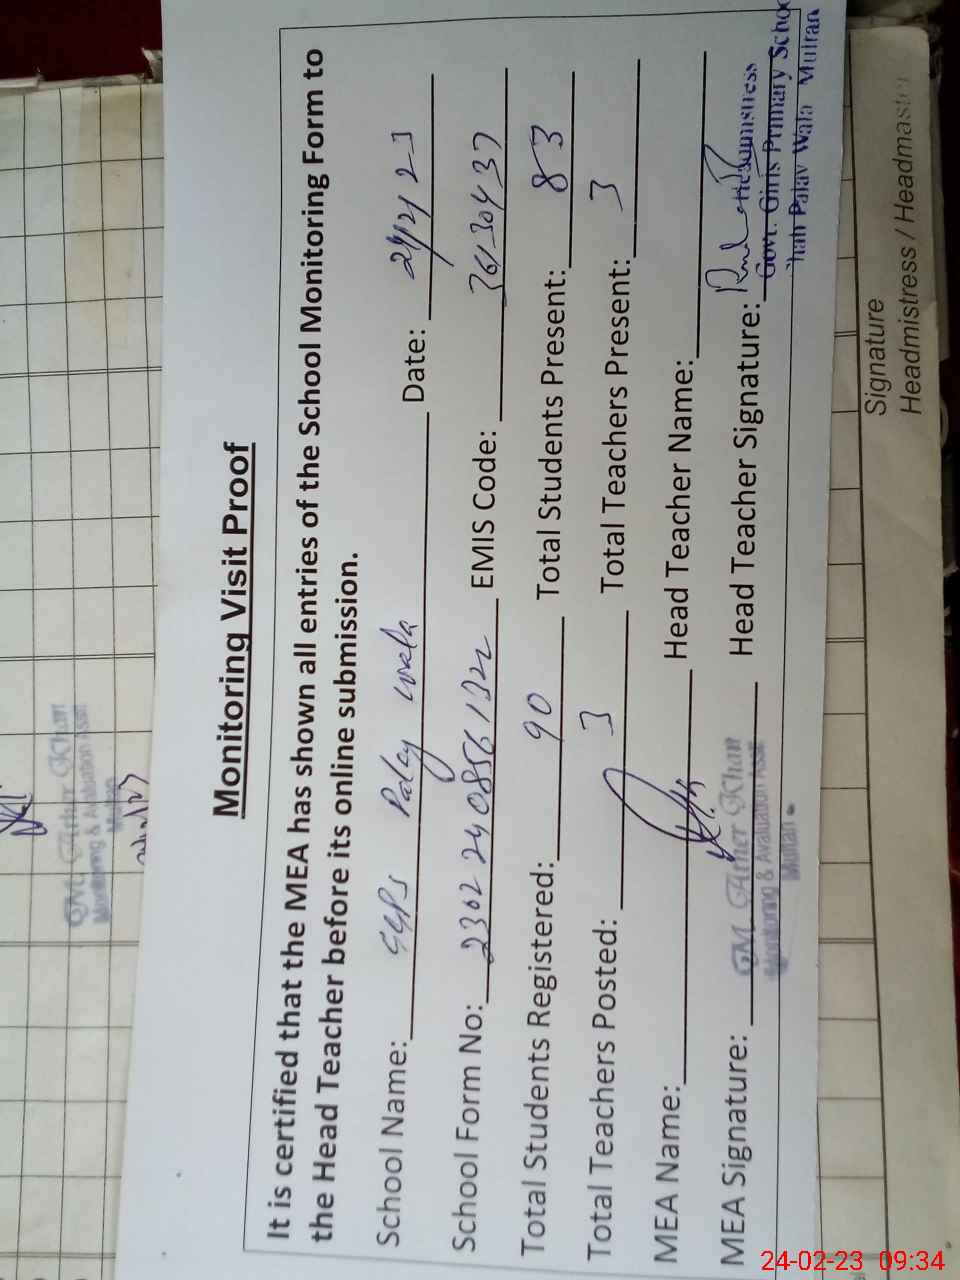 Monitoring Visit Proof
It is certified that the MEA has shown all entries of the School Monitoring Form to
the Head Teacher before its online submission.
School Name: GGPS Palay wala Date: 24/2/23
School Form No: 2302240856132 EMIS Code: 36130437
Total Students Registered: 90 Total Students Present: 83
Total Teachers Posted: 3 Total Teachers Present: 3
MEA Name: Head Teacher Name:
MEA Signature: Head Teacher Signature:
M. Ather Khan
Monitoring & Avaluation Asstt
Multan
Headmistress
Govt. Girls Primary School
Palay Wala Multan
M. Ather Khan
Monitoring & Avaluation Asstt
Multan
Signature
Headmistress / Headmaster
24-02-23 09:34